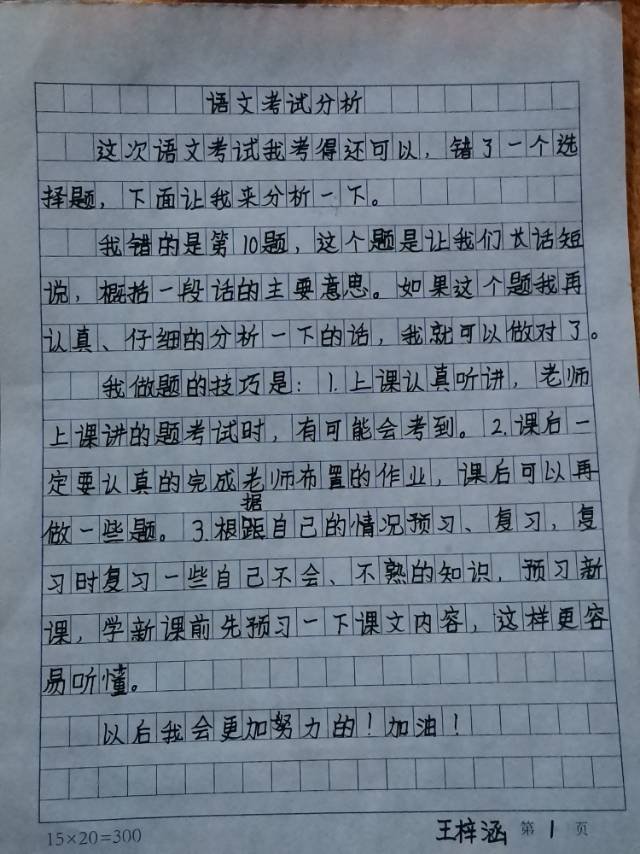 语文考试分析
这次语文考试我考得还可以，错了一个选
择题，下面让我来分析一下。
我错的是第10题，这个题是让我们长话短
说，概括一段话的主要意思。如果这个题我再
认真、仔细的分析一下的话，我就可以做对了。
我做题的技巧是：1.上课认真听讲，老师
上课讲的题考试时，有可能会考到。2.课后一
定要认真的完成老师布置的作业，课后可以再
据
做一些题。3.根距自己的情况预习、复习，复
习时复习一些自己不会、不熟的知识，预习新
课，学新课前先预习一下课文内容，这样更容
易听懂。
以后我会更加努力的！加油！
15×20=300 王梓涵 第1页